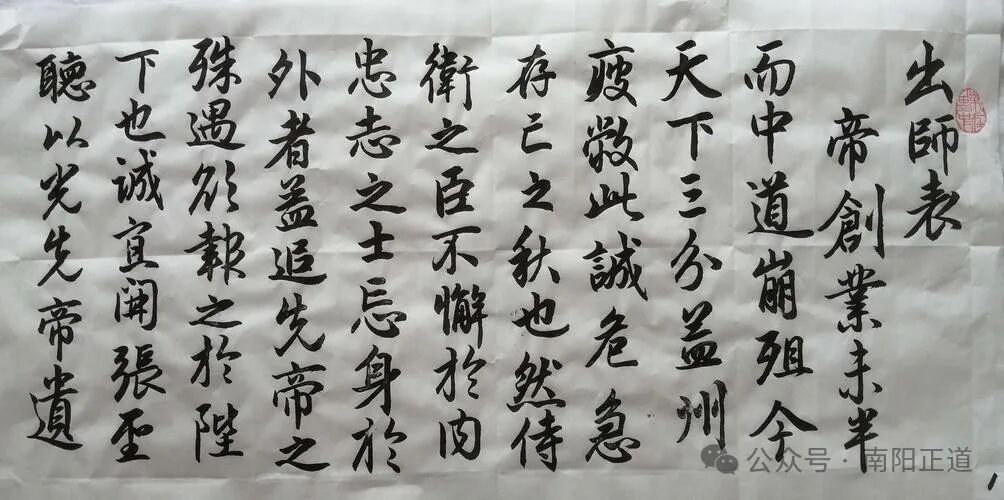 出師表
帝創業未半
而中道崩殂今
天下三分益州
疲敝此誠危急
存亡之秋也然侍
衛之臣不懈於内
忠志之士忘身於
外者益追先帝之
殊遇欲報之於陛
下也誠宜開張聖
聽以光先帝遺
公众号·南阳正道